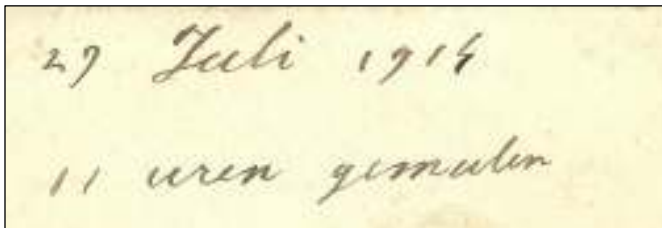 27 Juli 1914
11 uren gemalen